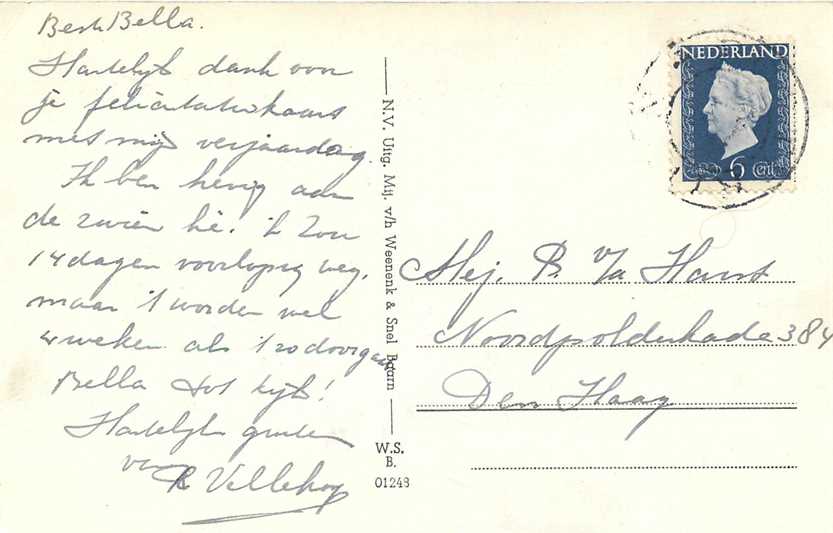 Beste Bella.
Hartelijk dank voor
je felicitatiekaart
met mijn verjaardag.
Ik ben hevig aan
de zwier hè. ik zou
14 dagen voorlopig weg.
maar 't worden wel
4 weken als 't zo doorgaat
Bella tot kijk!
Hartelijke groeten
van
N.V. Uitg. Mij. v/h Weenenk & Snel Baarn
W.S.
B.
01248
NEDERLAND
6 Cent
Mej. B. v/d Horst
Noordpolderkade 384
Den Haag